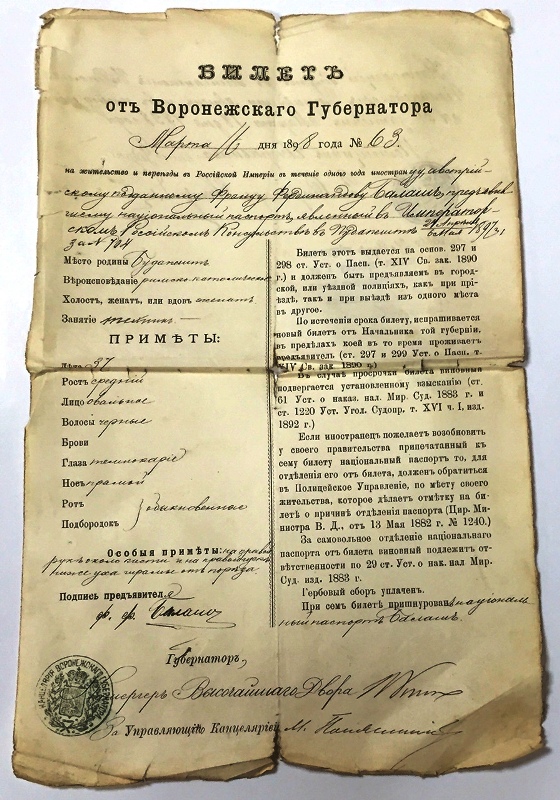 БИЛЕТЪ
отъ Воронежскаго Губернатора
Марта 16 дня 1898 года № 63.
на жительство и переѣзды въ Россійской Имперіи въ теченіе одного года иностранцу австрій-
скому подданному Францу Фердинандову Балашъ, предъявив-
шему національный паспортъ, явленный въ Император-
скомъ Россійскомъ Консульствѣ въ Будапештѣ 1897
за № 704
Мѣсто родины Будапештъ
Вѣроисповѣданіе римско-католическое
Холостъ, женатъ или вдовъ женатъ
Занятіе
ПРИМѢТЫ:
Лѣта 37
Ростъ средній
Лицо овальное
Волосы черные
Брови
Глаза темнокаріе
Носъ прямой
Ротъ
обыкновенные
Подбородокъ
Особыя примѣты: на правой
рукѣ около кисти и на правой щекѣ
ниже уха шрамы отъ порѣза.
Подпись предъявителя
Ф. Ф. Балашъ
Билетъ этотъ выдается на основ. 297 и
298 ст. Уст. о Пасп. (т. XIV Св. зак. 1890
г.) и долженъ быть предъявляемъ въ город-
ской, или уѣздной полиціяхъ, какъ при прі-
ѣздѣ, такъ и при выѣздѣ изъ одного мѣста
въ другое.
По истеченіи срока билета, испрашивается
новый билетъ отъ Начальника той губерніи,
въ предѣлахъ коей въ то время проживаетъ
предъявитель (ст. 297 и 299 Уст. о Пасп. т.
XIV Св. зак. 1890 г.)
Въ случаѣ просрочки билета виновный
подвергается установленному взысканію (ст.
61 Уст. о наказ. нал. Мир. Суд. 1883 г. и
ст. 1220 Уст. Угол. Судопр. т. XVI ч. I, изд.
1892 г.)
Если иностранецъ пожелаетъ возобновить
у своего правительства припечатанный къ
сему билету національный паспортъ то, для
отдѣленія его отъ билета, долженъ обратиться
въ Полицейское Управленіе, по мѣсту своего
жительства, которое дѣлаетъ отмѣтку на би-
летѣ о причинѣ отдѣленія паспорта (Цир. Ми-
нистра В. Д., отъ 13 Мая 1882 г. № 1240.)
За самовольное отдѣленіе національнаго
паспорта отъ билета виновный подлежитъ от-
вѣтственности по 29 ст. Уст. о нак. нал Мир.
Суд. изд. 1883 г.
Гербовый сборъ уплаченъ.
При семъ билетѣ пришнурованъ національ
ный паспортъ Балашъ.
Губернаторъ,
Камергеръ Высочайшаго Двора
За Управляющій Канцеляріею М.
КАНЦЕЛЯРІЯ ВОРОНЕЖСКАГО ГУБЕРНАТОРА